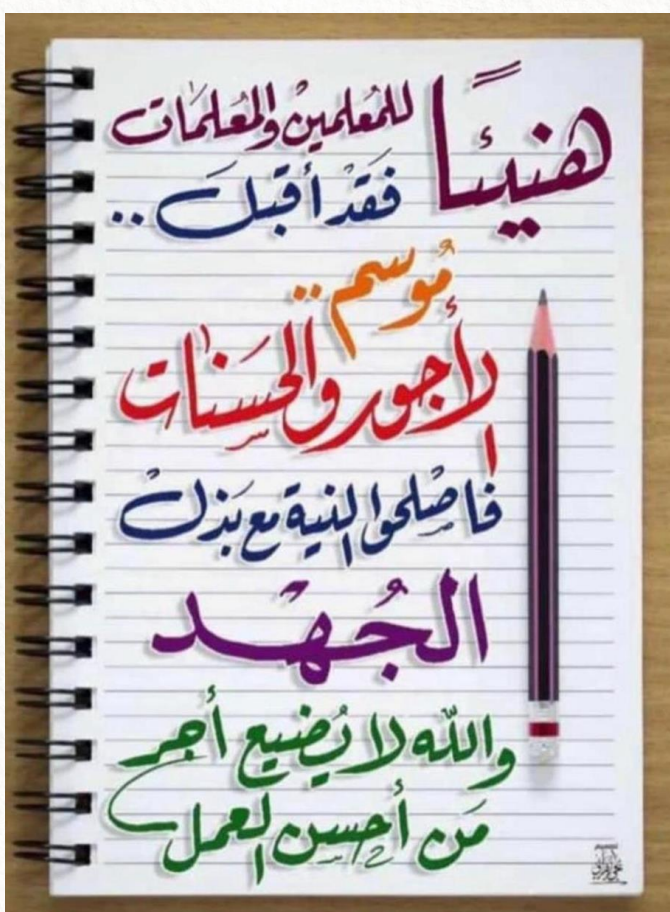 هنيئًا للمُعلمين والمُعلمَات
فَقَد أقبَلَ ..
مُوسم ..
الأجور والحَسَنات
فاصْلحوا النية مع بَذل
الجُهْد
والله لا يُضيع أجر
مَن أحسن العمل